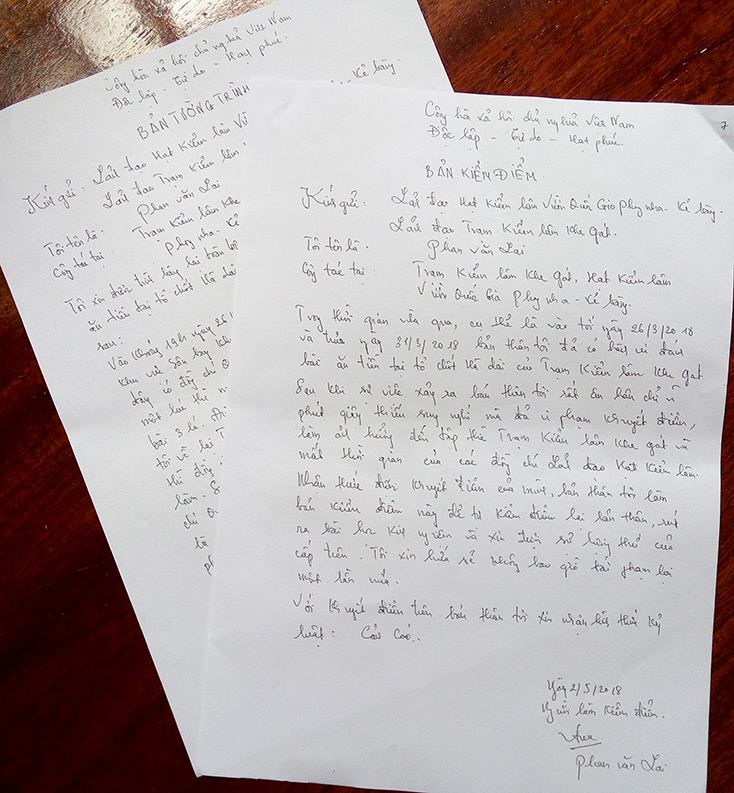 Cộng hòa xã hội chủ nghĩa Việt Nam
Độc lập - Tự do - Hạnh phúc.
BẢN TƯỜNG TRÌNH
- Kẻ bàng.
Kính gửi: Lãnh đạo Hạt Kiểm lâm Vườn
Lãnh đạo Trạm Kiểm lâm
Tôi tên là: Phan văn Lai
Công tác tại: Trạm Kiểm lâm Khe
Phong nha - Kẻ
Tôi xin
ăn tiền tại tổ chốt Hà dài
sau:
Vào khoảng 19h ngày 26
khu vực sân bay Kh
đây có đồng chí
một lúc thì
bài 3 lá.
tôi về lại T
thì đồng
lâm. S
chí
là
ph
7
Cộng hòa xã hội chủ nghĩa Việt Nam
Độc lập - Tự do - Hạnh phúc.
BẢN KIỂN ĐIỂM.
Kính gửi: Lãnh đạo Hạt Kiểm lâm Vườn Quốc Gia Phong nha - Kẻ bàng.
Lãnh đạo Trạm Kiểm lâm Khe gát.
Tôi tên là. Phan văn Lai
Công tác tại: Trạm Kiểm lâm Khe gát, Hạt Kiểm lâm
Vườn Quốc Gia Phong nha - Kẻ bàng.
Trong thời gian vừa qua, cụ thể là vào tối ngày 26/3/2018
và trưa ngày 31/3/2018 bản thân tôi đã có hành vi đánh
bài ăn tiền tại tổ chốt Hà dài của Trạm Kiểm lâm Khe gát
Sau khi sự việc xảy ra bản thân tôi rất ân hận chỉ vì
phút giây thiếu suy nghĩ mà đã vi phạm khuyết điểm,
làm ảnh hưởng đến tập thể Trạm Kiểm lâm Khe gát và
mất thời gian của các đồng chí Lãnh đạo Hạt Kiểm lâm.
Nhận thức được khuyết điểm của mình, bản thân tôi làm
bản kiểm điểm này để tự kiểm điểm lại bản thân, rút
ra bài học kinh nghiệm và xin được sự lượng thứ của
cấp trên. Tôi xin hứa sẽ không bao giờ tái phạm lại
một lần nữa.
Với khuyết điểm trên bản thân tôi xin nhận hình thức kỷ
luật: Cảnh Cáo.
Ngày 2/5/2018
Người làm kiểm điểm.
Phan văn Lai